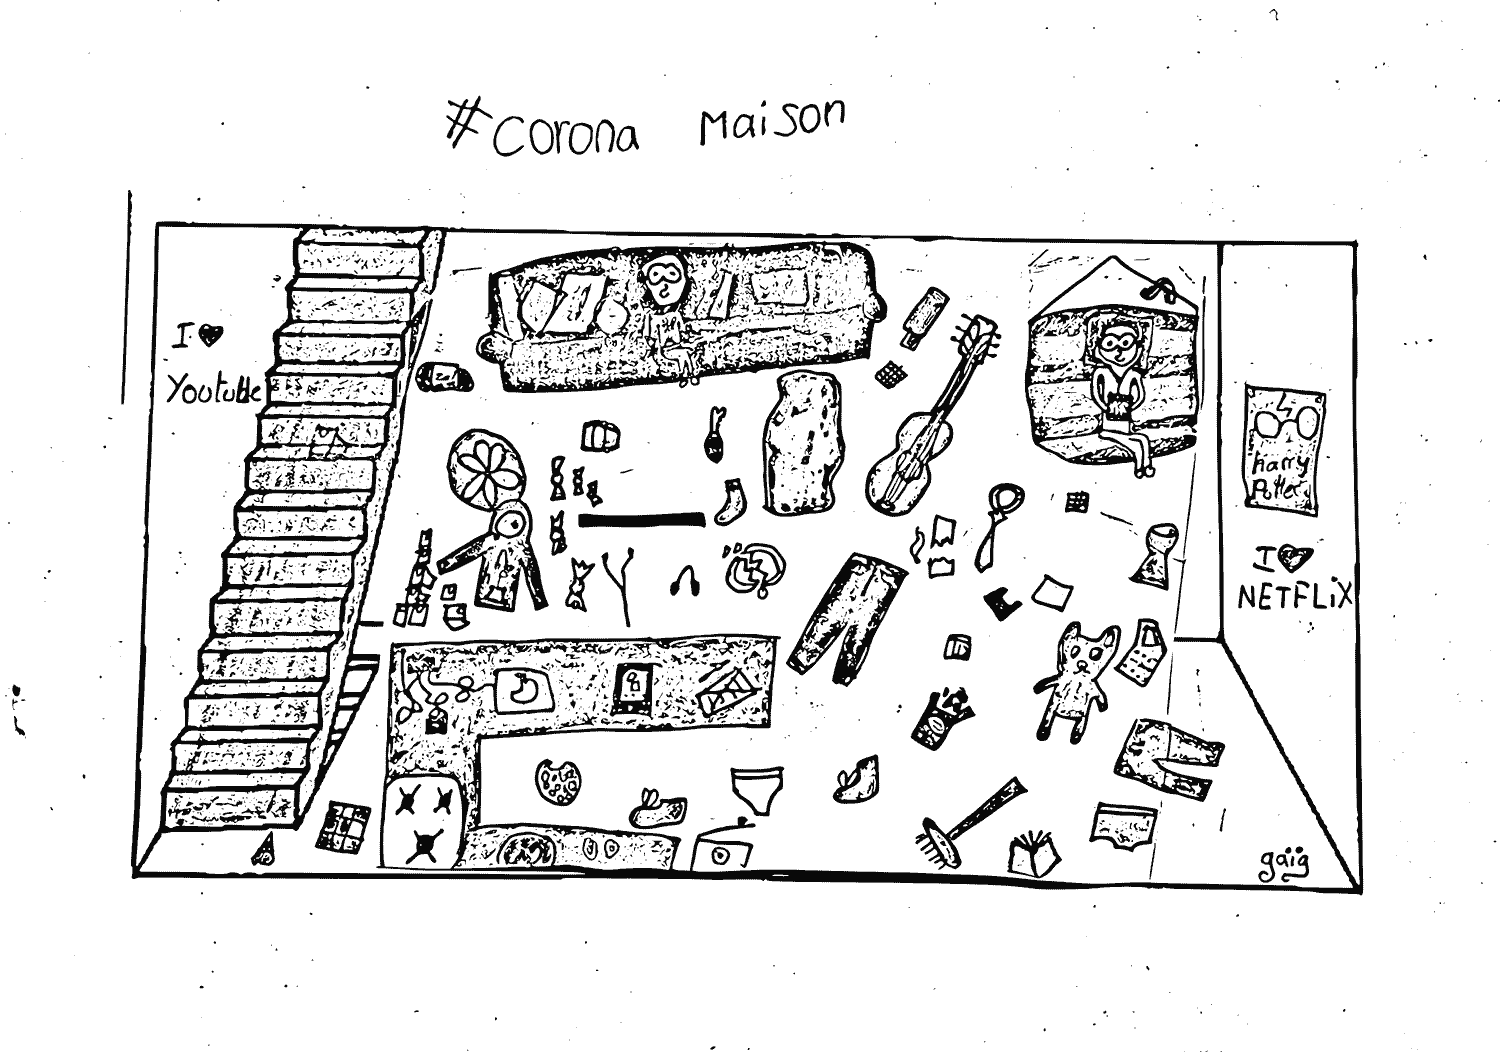 #corona maison
I ♥
Youtube
harry
Potter
I ♥
NETFLiX
gaïg